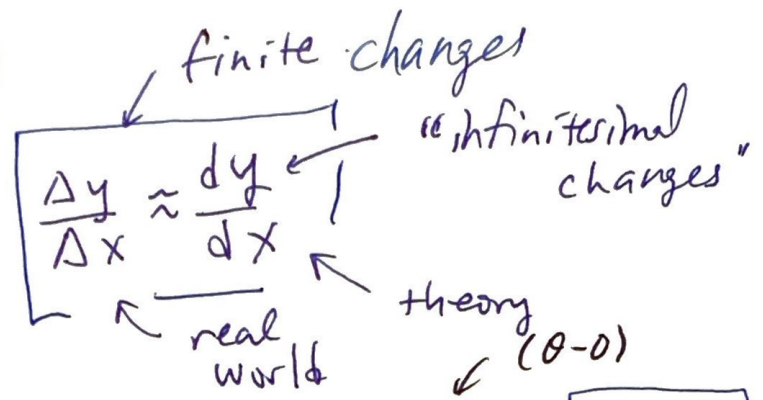 finite changes
"infinitesimal
changes"
Δy/Δx ≈ dy/dx
theory
real
world
(θ-0)